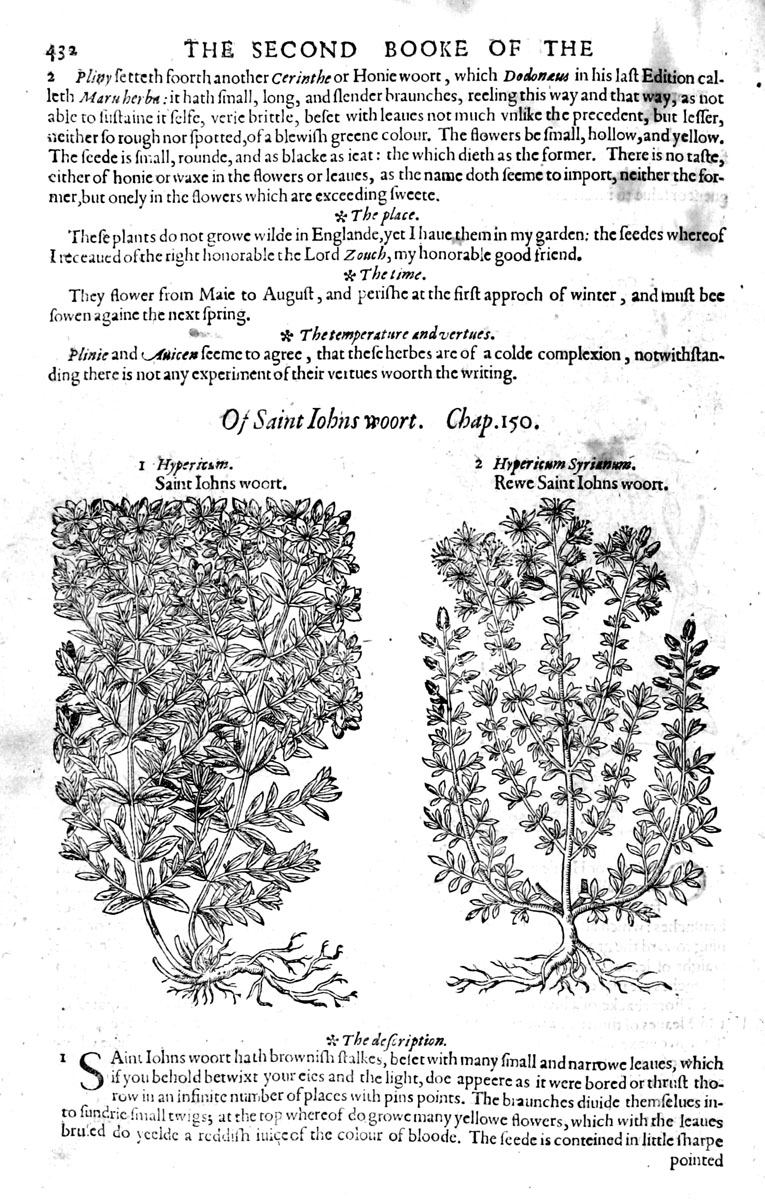 432 THE SECOND BOOKE OF THE
2 Pliny ſetteth foorth another Cerinthe or Honie woort, which Dodonæus in his laſt Edition cal-
leth Maru herba: it hath ſmall, long, and ſlender braunches, reeling this way and that way, as not
able to ſuſtaine it ſelfe, verie brittle, beſet with leaues not much vnlike the precedent, but leſſer,
neither ſo rough nor ſpotted, of a blewiſh greene colour. The flowers be ſmall, hollow, and yellow.
The ſeede is ſmall, rounde, and as blacke as ieat: the which dieth as the former. There is no taſte,
either of honie or waxe in the flowers or leaues, as the name doth ſeeme to import, neither the for-
mer, but onely in the flowers which are exceeding ſweete.
✻ The place.
Theſe plants do not growe wilde in Englande, yet I haue them in my garden: the ſeedes whereof
I receaued of the right honorable the Lord Zouch, my honorable good friend.
✻ The time.
They flower from Maie to Auguſt, and periſhe at the firſt approch of winter, and muſt bee
ſowen againe the next ſpring.
✻ The temperature and vertues.
Plinie and Auicen ſeeme to agree, that theſe herbes are of a colde complexion, notwithſtan-
ding there is not any experiment of their vertues woorth the writing.
Of Saint Iohns woort. Chap. 150.
1 Hypericum.
Saint Iohns woort.
2 Hypericum Syrianum.
Rewe Saint Iohns woort.
✻ The deſcription.
1 SAint Iohns woort hath browniſh ſtalkes, beſet with many ſmall and narrowe leaues, which
if you behold betwixt your eies and the light, doe appeere as it were bored or thruſt tho-
row in an infinite number of places with pins points. The braunches diuide themſelues in-
to ſundrie ſmall twigs; at the top whereof do growe many yellowe flowers, which with the leaues
bruſed do yeelde a reddiſh iuice of the colour of bloode. The ſeede is conteined in little ſharpe
pointed